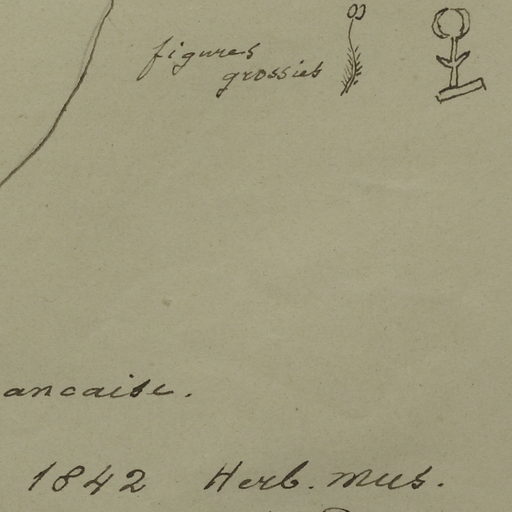 figures
grossies
ancaise.
1842 Herb. mus.